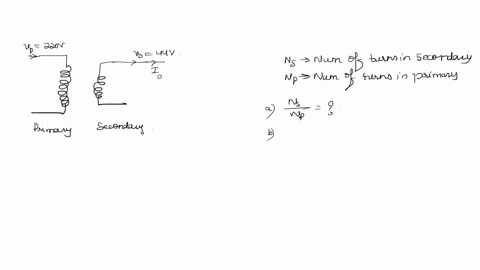 Vp = 220V
Vs = 44V.
Io
Primary
Secondary.
Ns → Num of turns in secondary
Np → Num of turns in primary
a) Ns/Np = ?
b)